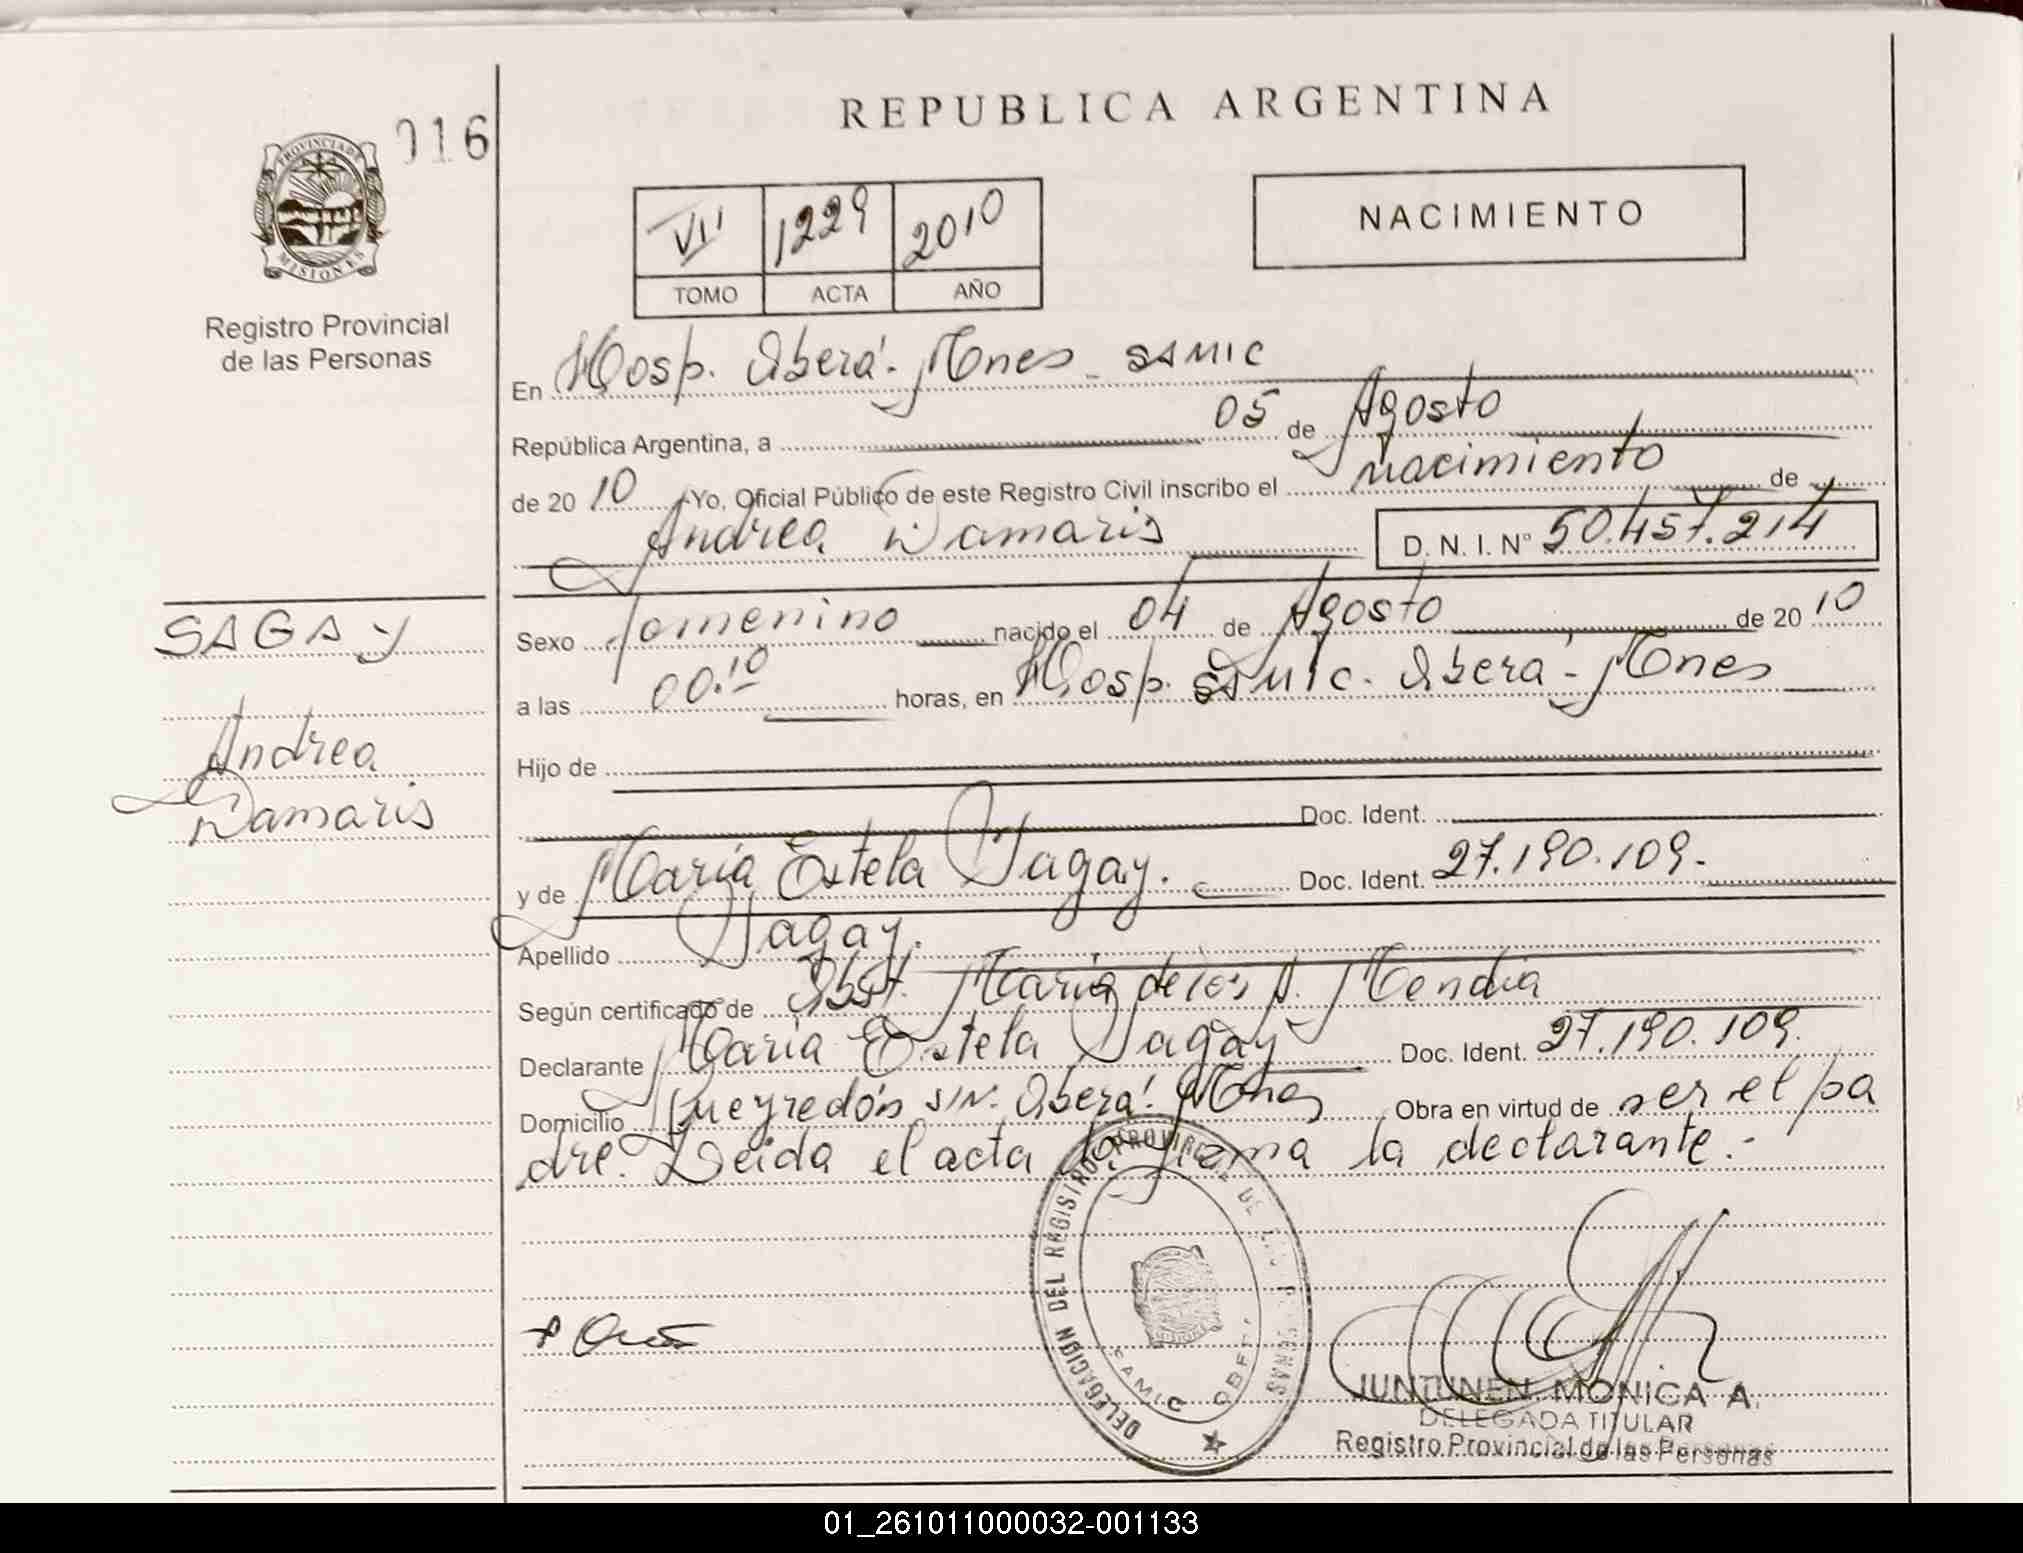 016
REPUBLICA ARGENTINA
PROVINCIA DE
MISIONES
Registro Provincial
de las Personas
VII 1229 2010
TOMO ACTA AÑO
NACIMIENTO
En Hosp. Oberá. Mnes - SAMIC
República Argentina, a 05 de Agosto
de 20 10 Yo, Oficial Público de este Registro Civil inscribo el nacimiento de
Andrea Damaris D. N. I. N° 50.457.214
SAGAY
Andrea
Damaris
Sexo femenino nacido el 04 de Agosto de 20 10
a las 00.10 horas, en Hosp. SAMIC. Oberá - Mnes
Hijo de
Doc. Ident.
y de María Estela Sagay. Doc. Ident. 27.190.109.-
Apellido Sagay.
Según certificado de Obst. María de los A. Mendia
Declarante María Estela Sagay Doc. Ident. 27.190.109.
Domicilio Pueyredón S/N. Oberá. Mnes Obra en virtud de ser el pa
dre. Leida el acta la firma la declarante.-
DELEGACION DEL REGISTRO PROVINCIAL DE LAS PERSONAS
SAMIC OBERA
JUNTUNEN MONICA A.
DELEGADA TITULAR
Registro Provincial de las Personas
01_261011000032-001133